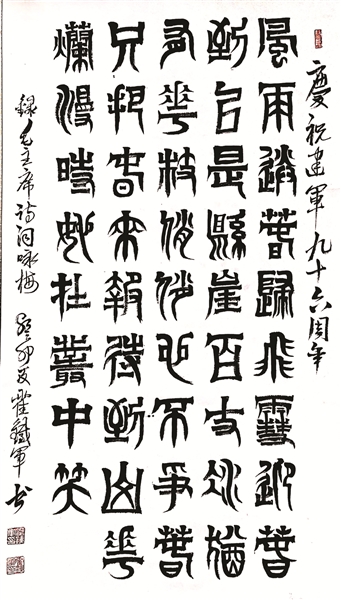 慶祝建軍九十六周年
風雨送春歸飛雪迎春
到已是縣崖百丈冰猶
有花枝俏俏也不爭春
只把春來報待到山花
爛漫時她在叢中笑
錄毛主席诗词咏梅 癸卯夏 鐵軍书